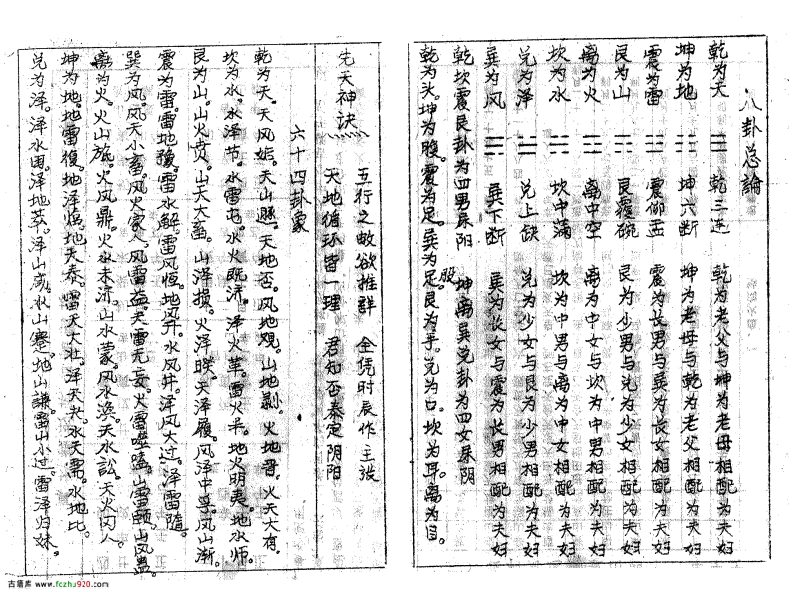 八卦总論
乾为天 ☰ 乾三连 乾为老父与坤为老母相配为夫妇
坤为地 ☷ 坤六断 坤为老母与乾为老父相配为夫妇
震为雷 ☳ 震仰盂 震为长男与巽为长女相配为夫妇
艮为山 ☶ 艮覆碗 艮为少男与兑为少女相配为夫妇
离为火 ☲ 离中空 离为中女与坎为中男相配为夫妇
坎为水 ☵ 坎中满 坎为中男与离为中女相配为夫妇
兑为泽 ☱ 兑上缺 兑为少女与艮为少男相配为夫妇
巽为风 ☴ 巽下断 巽为长女与震为长男相配为夫妇
乾坎震艮卦为四男属阳 坤离巽兑卦为四女属阴
乾为头。坤为腹。震为足。巽为股。艮为手。兑为口。坎为耳。离为目。
先天神訣
五行之 欲推群 全凭时辰作主张
天地循环皆一理 君知否泰定阴阳
六十四卦象
乾为天。天风姤。天山遯。天地否。风地观。山地剥。火地晋。火天大有。
坎为水。水泽节。水雷屯。水火既济。泽火革。雷火丰。地火明夷。地水师。
艮为山。山火贲。山天大畜。山泽损。火泽睽。天泽履。风泽中孚。风山渐。
震为雷。雷地豫。雷水解。雷风恒。地风升。水风井。泽风大过。泽雷隨。
巽为风。风天小畜。风火家人。风雷益。天雷无妄。火雷噬嗑。山雷頤。山风蛊。
離为火。火山旅。火风鼎。火水未济。山水蒙。风水涣。天水訟。天火同人。
坤为地。地雷復。地泽临。地天泰。雷天大壮。泽天夬。水天需。水地比。
兑为泽。泽水困。泽地萃。泽山咸。水山蹇。地山謙。雷山小过。雷泽归妹。
古籍库 www.fczhu920.com